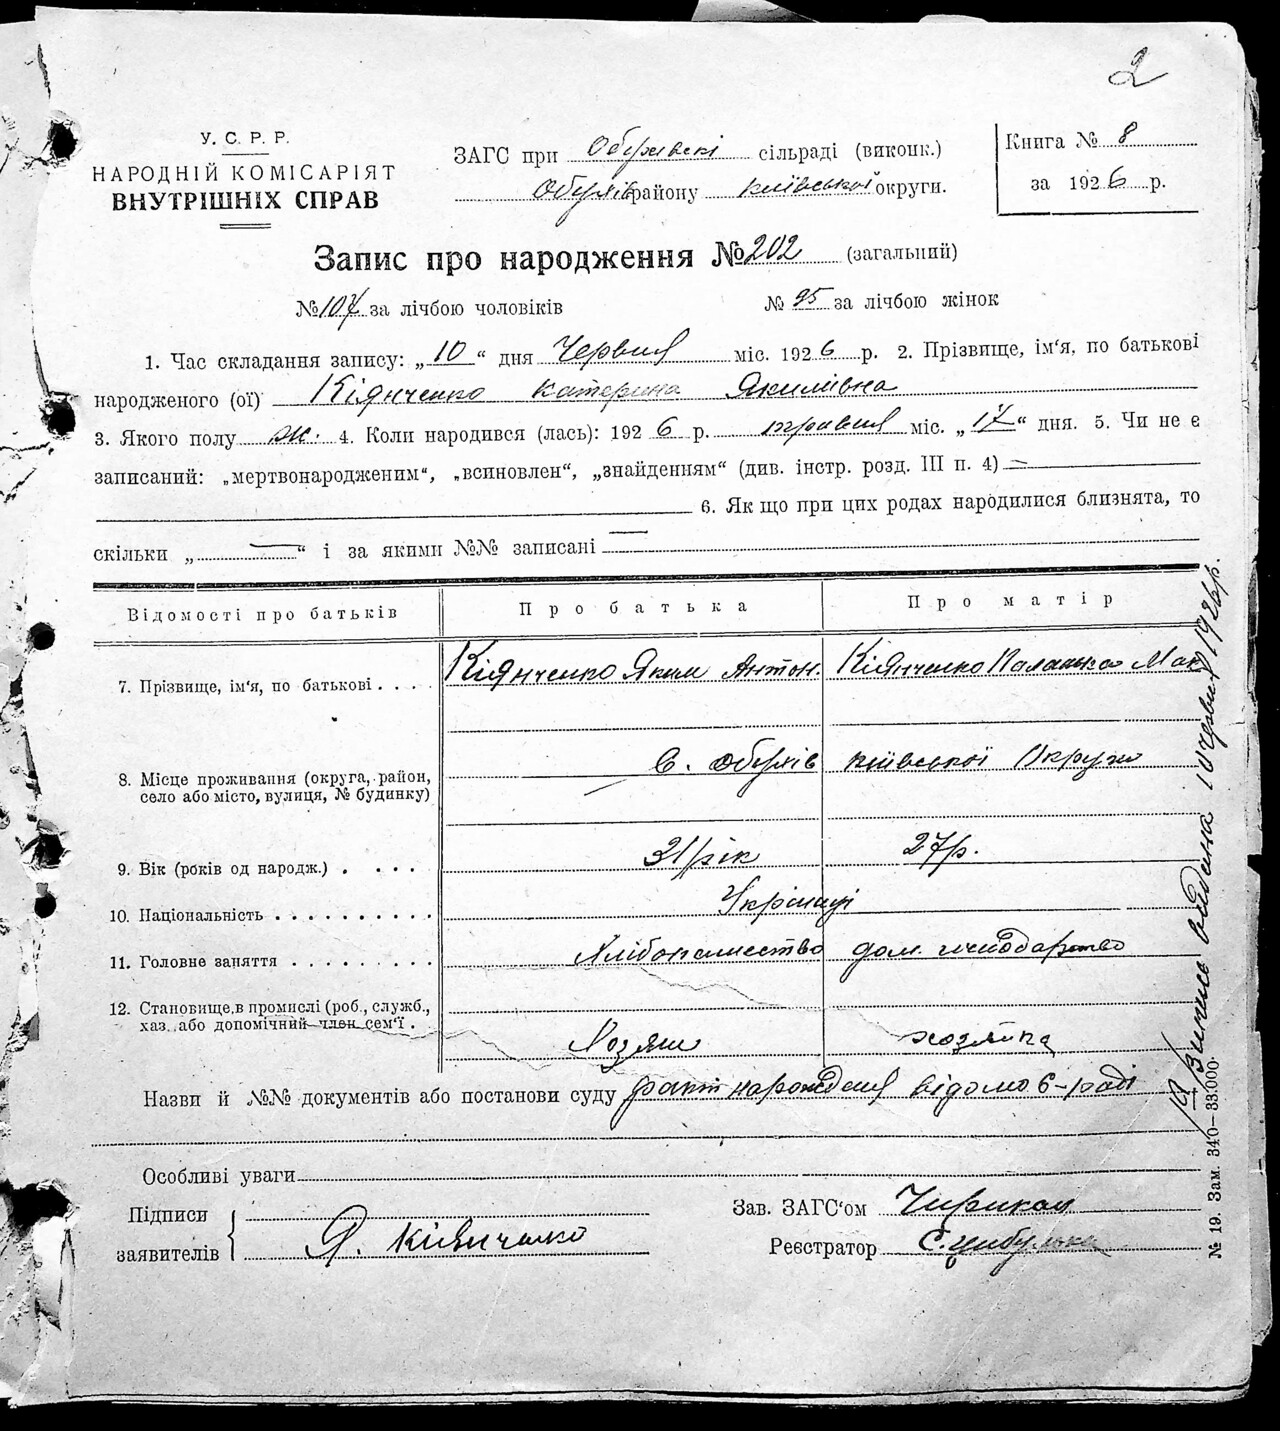 2
У. С. Р. Р.
НАРОДНІЙ КОМІСАРІЯТ
ВНУТРІШНІХ СПРАВ
ЗАГС при Обухівскі сільраді (виконк.)
Обухів району київської округи.
Книга № 8
за 1926 р.
Запис про народження № 202 (загальний)
№ 107 за лічбою чоловіків № 95 за лічбою жінок
1. Час складання запису: „10“ дня Червня міс. 1926 р. 2. Прізвище, ім‘я, по батькові
народженого (ої) Кіянченко Катерина Якимівна
3. Якого полу ж. 4. Коли народився (лась): 1926 р. травня міс. „17“ дня. 5. Чи не є
записаний: „мертвонародженим“, „всиновлен“, „знайденням“ (див. інстр. розд. III п. 4) —
6. Як що при цих родах народилися близнята, то
скільки „—“ і за якими №№ записані —
Відомості про батьків Про батька Про матір
7. Прізвище, ім‘я, по батькові . . . . Кіянченко Яким Антон. Кіянченко Палашка Мак
8. Місце проживання (округа, район,
село або місто, вулиця, № будинку) с. Обухів київської Округи
9. Вік (років од народж.) . . . . 31 рік 27 р.
10. Національність . . . . . . . . . . Українці
11. Головне заняття . . . . . . . . . Хлібопашество дом. господарство
12. Становище в промислі (роб., служб.,
хаз. або допомічний член сем‘ї . Хозяин хозяйка
Назви й №№ документів або постанови суду факт народження відомо с-раді
Особливі уваги
Підписи
заявителів Я. Кіянченко
Зав. ЗАГС‘ом
Реєстратор С. Цибулька
Випись видана 10 червня 1926 р.
№ 19. Зам. 340—33.000.